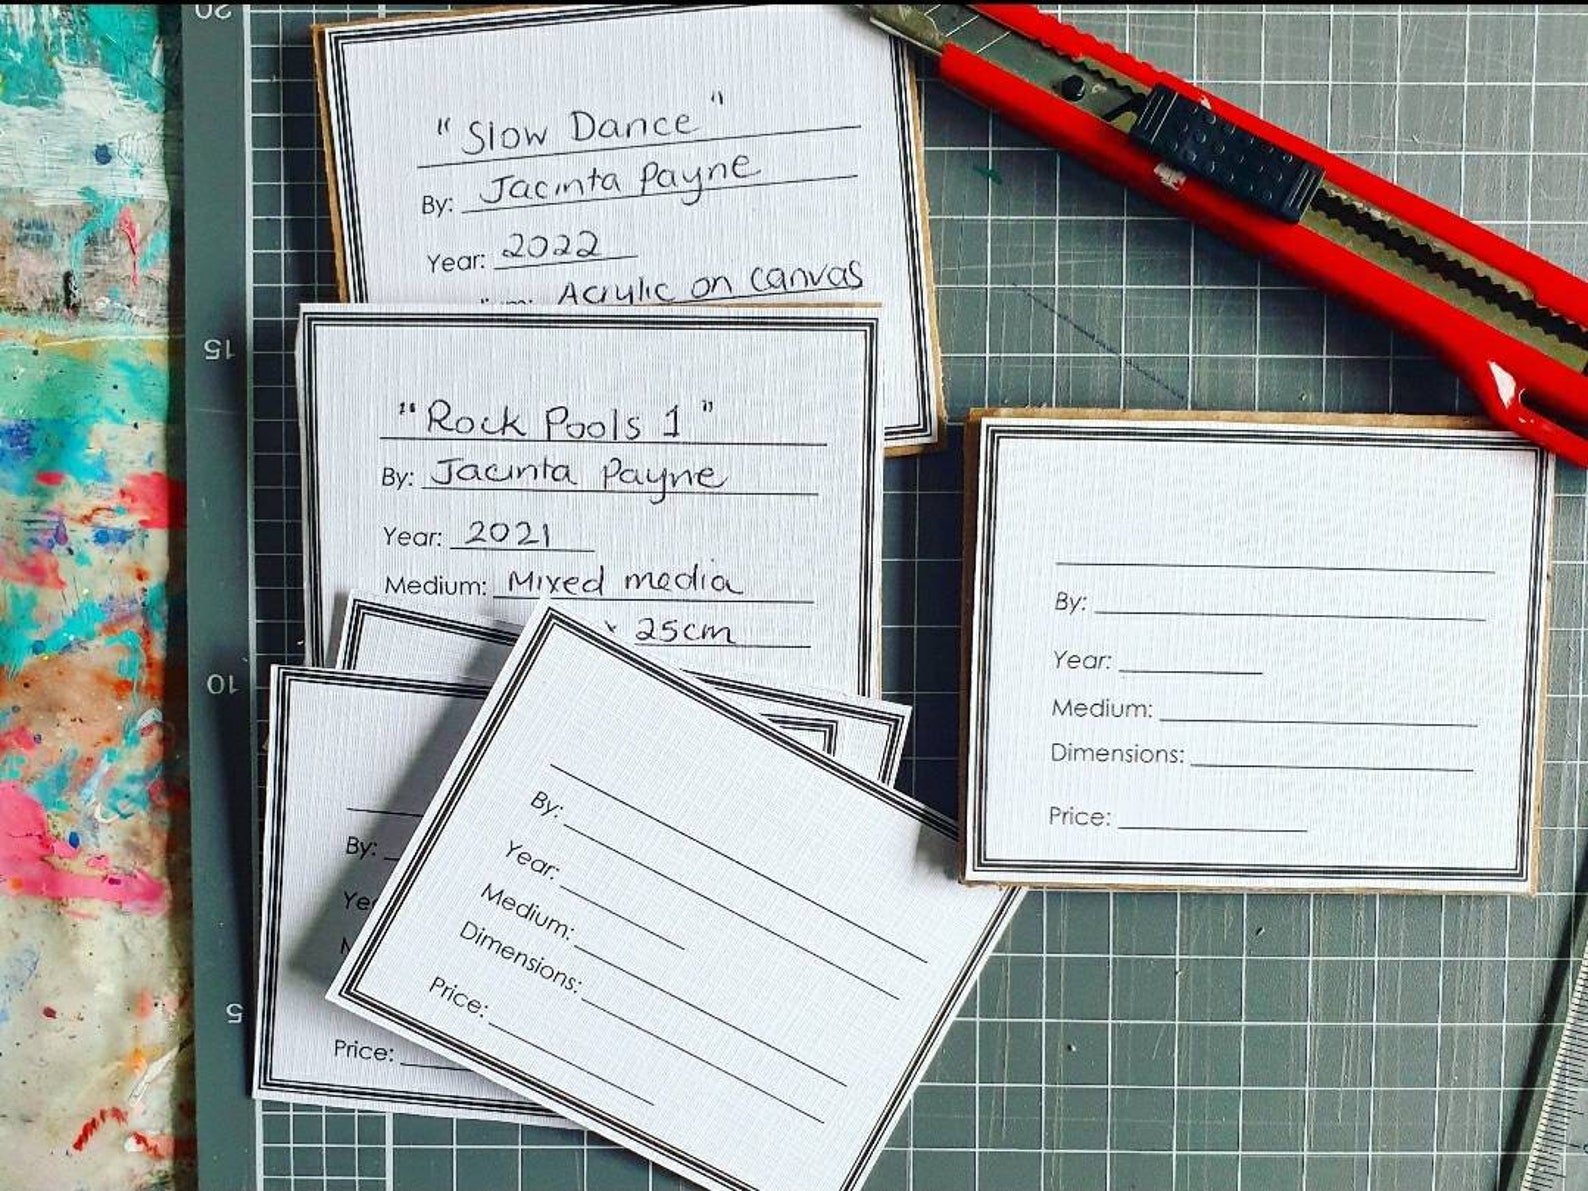 20
"Slow Dance"
By: Jacinta Payne
Year: 2022
Acrylic on canvas
15
"Rock Pools 1"
By: Jacinta Payne
Year: 2021
Medium: Mixed media
x 25cm
10
By:
Year:
Medium:
Dimensions:
Price:
By:
Price:
By:
Year:
Medium:
Dimensions:
Price:
5